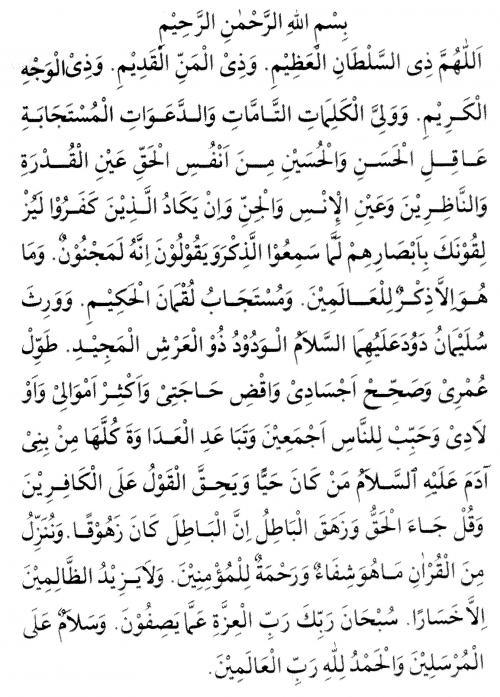 بِسْمِ اللهِ الرَّحْمٰنِ الرَّحِيْمِ
اَللّٰهُمَّ ذِى السُّلْطَانِ الْعَظِيْمِ. وَذِىْ الْمَنِّ الْقَدِيْمِ. وَذِىْ الْوَجْهِ
الْكَرِيْمِ. وَوَلِيِّ الْكَلِمَاتِ التَّامَّاتِ وَالدَّعَوَاتِ الْمُسْتَجَابَةِ
عَاقِلِ الْحَسَنِ وَالْحُسَيْنِ مِنْ اَنْفُسِ الْحَقِّ عَيْنِ الْقُدْرَةِ
وَالنَّاظِرِيْنَ وَعَيْنِ الْاِنْسِ وَالْجِنِّ وَاِنْ يَكَادُ الَّذِيْنَ كَفَرُوْا لَيُزْ
لِقُوْنَكَ بِاَبْصَارِهِمْ لَمَّا سَمِعُوْا الذِّكْرَ وَيَقُوْلُوْنَ اِنَّهُ لَمَجْنُوْنٌ. وَمَا
هُوَ اِلَّا ذِكْرٌ لِلْعَالَمِيْنَ. وَمُسْتَجَابُ لُقْمَانَ الْحَكِيْمِ. وَوَرِثَ
سُلَيْمَانُ دَوُدَ عَلَيْهِمَا السَّلَامُ الْوَدُوْدُ ذُو الْعَرْشِ الْمَجِيْدِ. طَوِّلْ
عُمْرِىْ وَصَحِّحْ اَجْسَادِىْ وَاقْضِ حَاجَتِىْ وَاَكْثِرْ اَمْوَالِىْ وَاَوْ
لَادِىْ وَحَبِّبْ لِلنَّاسِ اَجْمَعِيْنَ وَتَبَاعَدِ الْعَدَا وَةَ كُلَّهَا مِنْ بَنِىْ
آدَمَ عَلَيْهِ السَّلَامُ مَنْ كَانَ حَيًّا وَيَحِقَّ الْقَوْلُ عَلَى الْكَافِرِيْنَ
وَقُلْ جَاءَ الْحَقُّ وَزَهَقَ الْبَاطِلُ اِنَّ الْبَاطِلَ كَانَ زَهُوْقًا. وَنُنَزِّلُ
مِنَ الْقُرْاٰنِ مَا هُوَ شِفَاءٌ وَرَحْمَةٌ لِلْمُؤْمِنِيْنَ. وَلَا يَزِيْدُ الظَّالِمِيْنَ
اِلَّا خَسَارًا. سُبْحَانَ رَبِّكَ رَبِّ الْعِزَّةِ عَمَّا يَصِفُوْنَ. وَسَلَامٌ عَلَى
الْمُرْسَلِيْنَ وَالْحَمْدُ لِلهِ رَبِّ الْعَالَمِيْنَ.